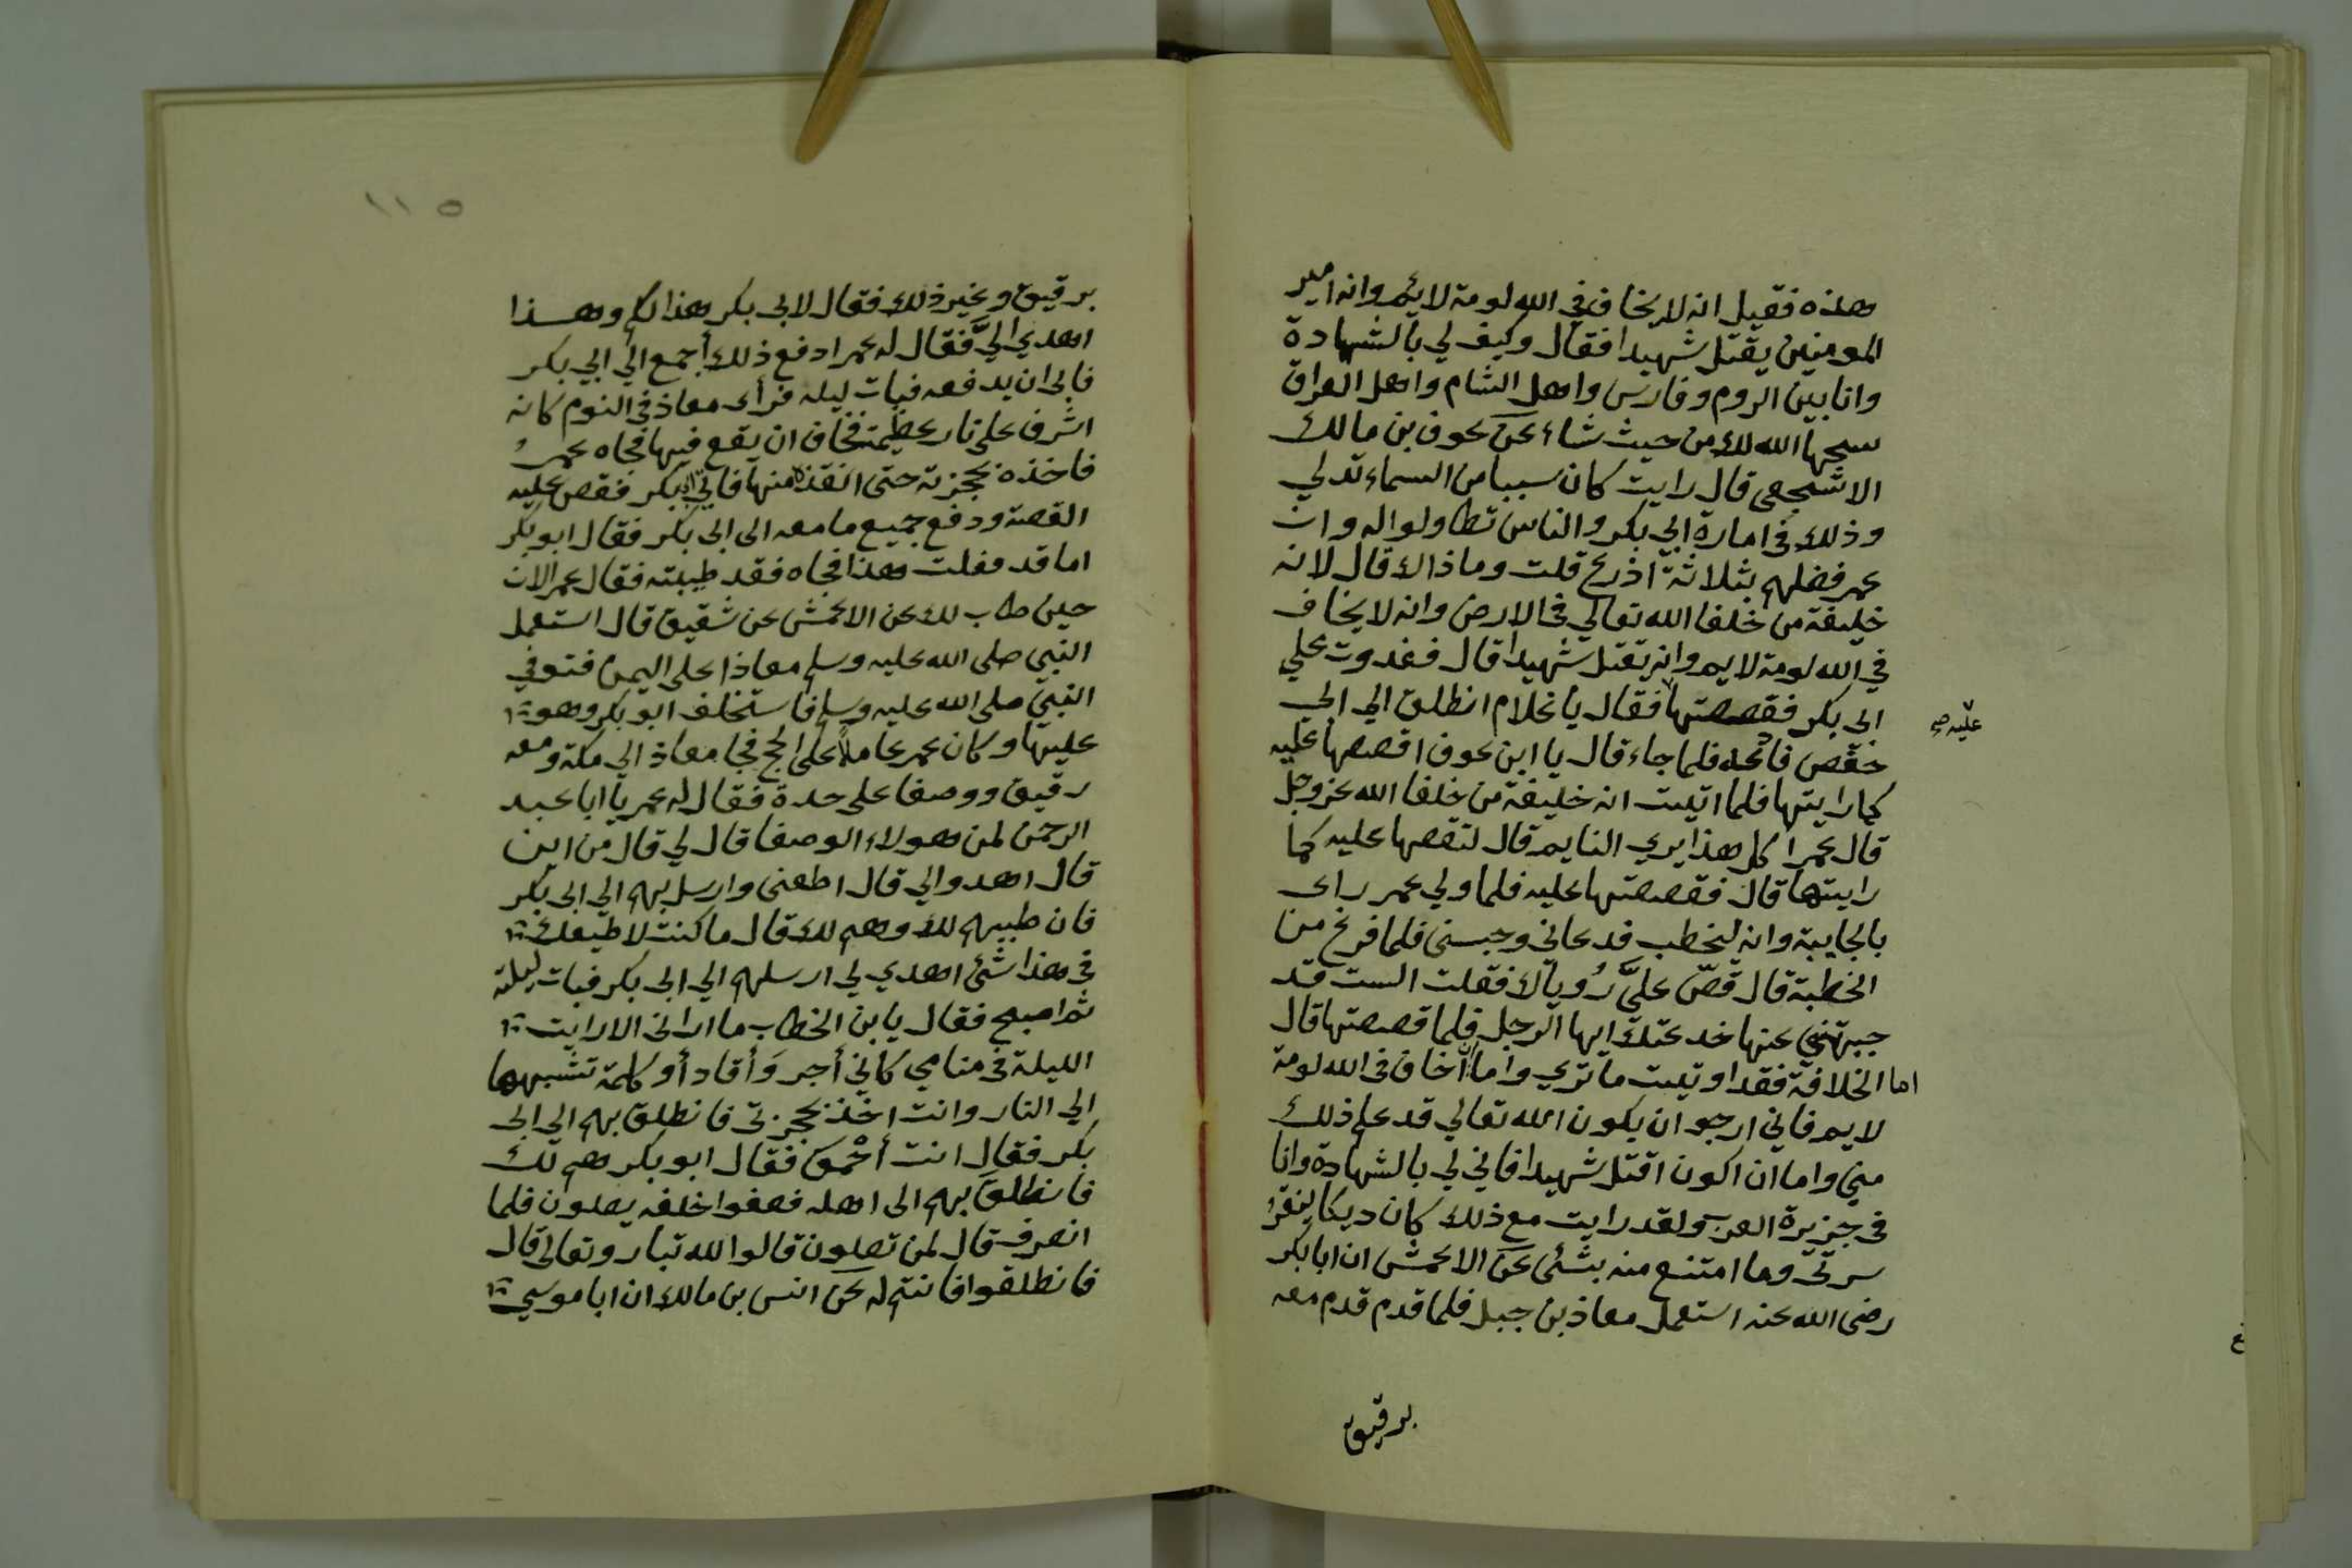 هذه فقيل انه لا يخاف في الله لومة لائم وانه امير
المومنين يقتل شهيدا فقال وكيف لي بالشهادة
وانا بين الروم وفارس واهل الشام واهل العراق
سيجها الله لك من حيث شاء عن عوف بن مالك
الاشجعي قال رايت كان سببا من السماء تدلي
وذلك في امارة ابي بكر والناس تطاولوا له وان
عمر فضلهم بثلاثة اذرع قلت وماذاك قال لانه
خليفة من خلفا الله تعالي في الارض وانه لا يخاف
في الله لومة لايم وانه يقتل شهيدا قال فغدوت علي
ابي بكر فقصصتها فقال يا غلام انطلق الي ابي
عليه صح
حفص فلما جاء قال يا ابن عوف اقصصها عليه
كما رايتها فلما اتيت انه خليفة من خلفا الله عز وجل
قال عمر اكل هذا يري النايم قال لتقصها عليه كما
رايتها قال فقصصتها عليه فلما ولي عمر راى
بالجابية وانه ليخطب فدعاني فلما فرغ من
الخطبة قال قصّ عليَّ رُوياك فقلت الست قد
جبهتني عنها خدعتك ايها الرجل فلما قصصتها قال
اما الخلافة فقد اوتيت ما تري واما ان اخاف في الله لومة
لايم فاني ارجو ان يكون الله تعالي قد علم ذلك
مني واما ان اكون اقتل شهيدا فاني لي بالشهادة وانا
في جزيرة العرب ولقد رايت مع ذلك كان ديكا ينقر
سرتي وما امتنع منه بشئي عن الاعمش ان ابا بكر
رضي الله عنه استعمل معاذ بن جبل فلما قدم قدم معه
برقيق
١١٥
برقيق وغير ذلك فقال لابي بكر هذا لكم وهذا
اهدي اليَّ فقال له عمر ادفع ذلك أجمع الي ابي بكر
فابى ان يدفعه فبات ليله فرأى معاذ في النوم كانه
اشرف علي نار عظيمة فخاف ان يقع فيها فجاه عمر
فاخذه بحجزته حتى انقذه منها فاتي ابا بكر فقص عليه
القصة ودفع جميع ما معه الى ابي بكر فقال ابو بكر
اما قد فعلت هذا فجاه فقد طيبته فقال عمر الان
حين طاب لك عن الاعمش عن شقيق قال استعمل
النبي صلى الله عليه وسلم معاذا على اليمن فتوفي
النبي صلى الله عليه وسلم فاستخلف ابو بكر وهو
عليها وكان عمر عاملاً على الحج فجا معاذ الي مكة ومعه
رقيق ووصفا على حدة فقال له عمر يا ابا عبد
الرحمن لمن هولاء الوصفا قال لي قال من اين
قال اهدوا لي قال اطعني وارسل بهم الي ابي بكر
فان طيبهم لك وهم لك قال ما كنت لاطيعك
في هذا شئ اهدي لي ارسلهم الي ابي بكر فبات ليلته
ثم اصبح فقال يا بن الخطاب ما اراني الا رايت
الليلة في منامي كأني أجر وَأقاد أو كلمة تشبهها
الي النار وانت اخذ بحجزتي فانطلق بهم الي ابي
بكر فقال انت أحْمق فقال ابو بكر هم لك
فانطلق بهم الى اهله فصفوا خلفه يصلون فلما
انصرف قال لمن تصلون قالوا لله تبارك وتعالى قال
فانطلقوا فانتم له عن انس بن مالك ان ابا موسي